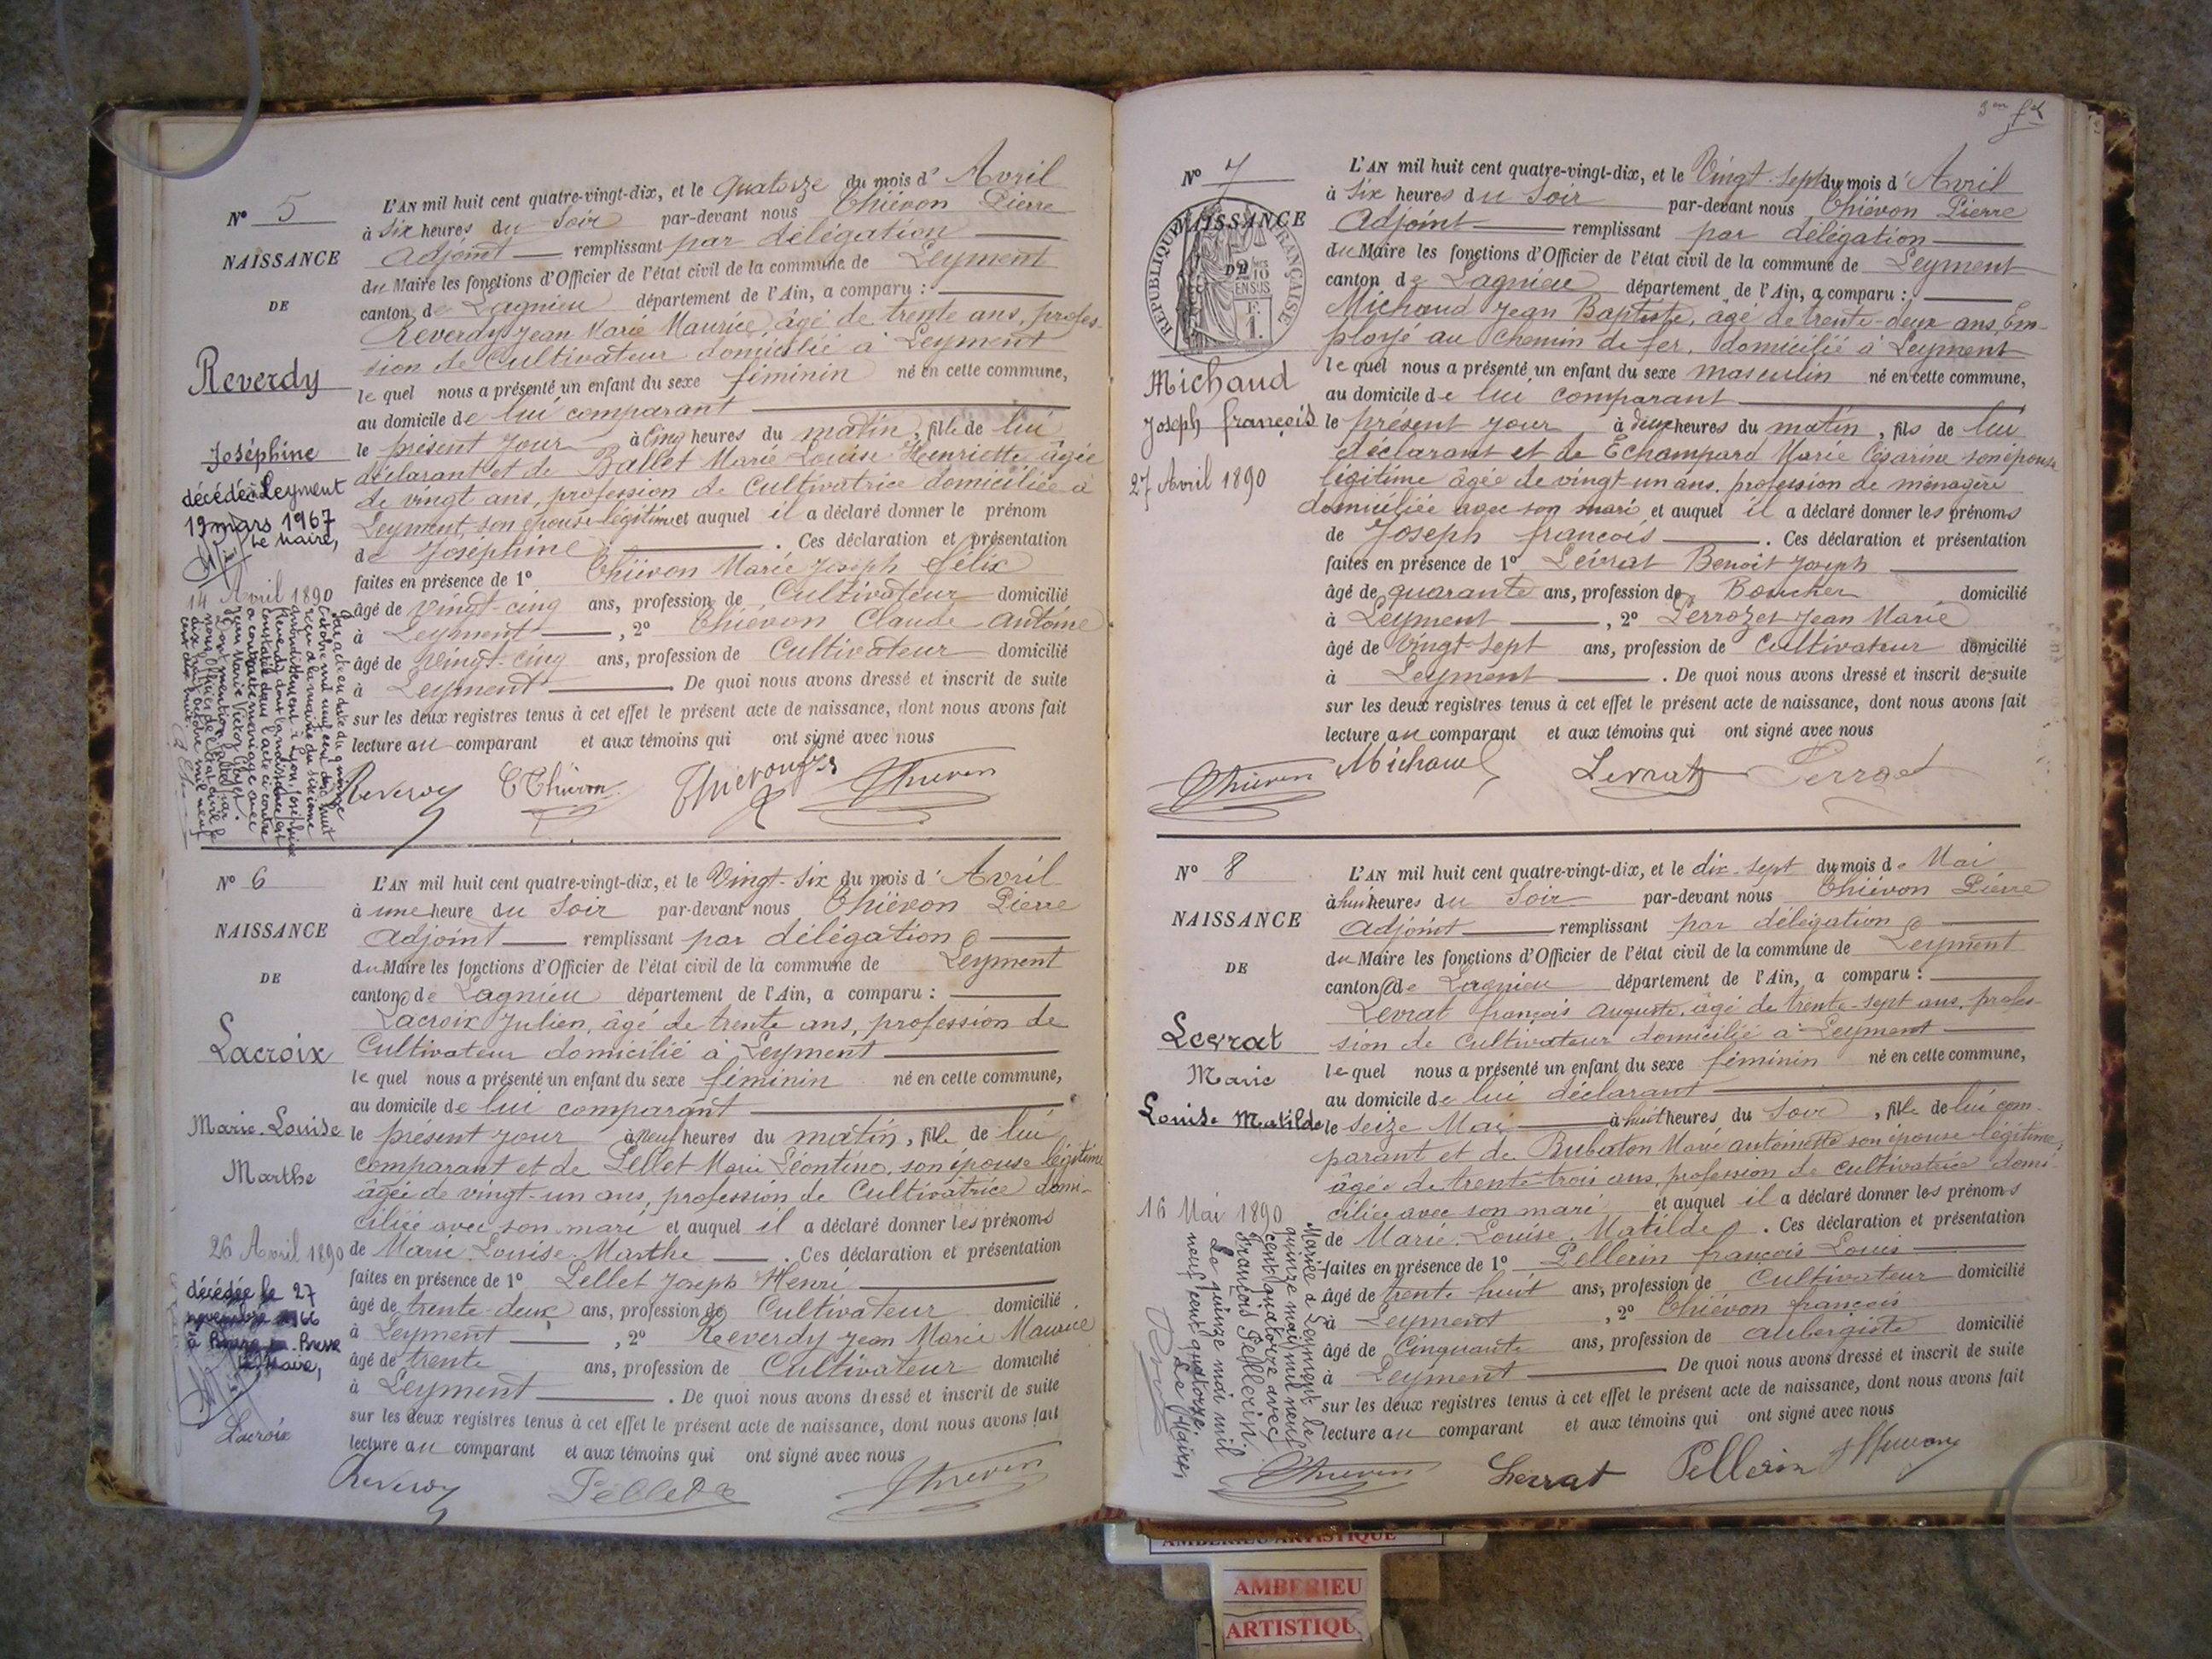 N° 5
NAISSANCE
DE
Reverdy
Joséphine
décédée à Leyment
19 mars 1967
Le Maire,
14 Avril 1890
L'AN mil huit cent quatre-vingt-dix, et le quatorze du mois d'Avril
à six heures du soir par-devant nous Thiévon Pierre
Adjoint remplissant par délégation
du Maire les fonctions d'Officier de l'état civil de la commune de Leyment
canton de Lagnieu département de l'Ain, a comparu :
Reverdy Jean Marie Maurice, âgé de trente ans, profes-
sion de Cultivateur domicilié à Leyment
lequel nous a présenté un enfant du sexe féminin né en cette commune,
au domicile de lui comparant
le présent jour à cinq heures du matin, fille de lui
déclarant et de Ballet Marie Louise Henriette âgée
de vingt ans, profession de Cultivatrice domiciliée à
Leyment, son épouse légitime et auquel il a déclaré donner le prénom
de Joséphine. Ces déclaration et présentation
faites en présence de 1° Thiévon Marie Joseph félix
âgé de vingt-cinq ans, profession de Cultivateur domicilié
à Leyment, 2° Thiévon Claude Antoine
âgé de vingt-cinq ans, profession de Cultivateur domicilié
à Leyment. De quoi nous avons dressé et inscrit de suite
sur les deux registres tenus à cet effet le présent acte de naissance, dont nous avons fait
lecture au comparant et aux témoins qui ont signé avec nous
Reverdy C Thiévon Thiévon Thiévon
N° 6
NAISSANCE
DE
Lacroix
Marie-Louise
Marthe
26 Avril 1890
décédée le 27
novembre 1966
à Bourg en Bresse
Le Maire,
Lacroix
L'AN mil huit cent quatre-vingt-dix, et le Vingt-six du mois d'Avril
à une heure du soir par-devant nous Thiévon Pierre
Adjoint remplissant par délégation
du Maire les fonctions d'Officier de l'état civil de la commune de Leyment
canton de Lagnieu département de l'Ain, a comparu :
Lacroix Julien, âgé de trente ans, profession de
Cultivateur domicilié à Leyment
lequel nous a présenté un enfant du sexe féminin né en cette commune,
au domicile de lui comparant
le présent jour à neuf heures du matin, fille de lui
comparant et de Pellet Marie Léontine, son épouse légitime
âgée de vingt-un ans, profession de Cultivatrice domi-
ciliée avec son mari et auquel il a déclaré donner les prénoms
de Marie Louise Marthe. Ces déclaration et présentation
faites en présence de 1° Pellet Joseph Henri
âgé de trente-deux ans, profession de Cultivateur domicilié
à Leyment, 2° Reverdy Jean Marie Maurice
âgé de trente ans, profession de Cultivateur domicilié
à Leyment. De quoi nous avons dressé et inscrit de suite
sur les deux registres tenus à cet effet le présent acte de naissance, dont nous avons fait
lecture au comparant et aux témoins qui ont signé avec nous
Reverdy Pellet Thiévon
N° 7
NAISSANCE
DE
RÉPUBLIQUE FRANÇAISE
Michaud
Joseph françois
27 Avril 1890
L'AN mil huit cent quatre-vingt-dix, et le Vingt-sept du mois d'Avril
à six heures du soir par-devant nous Thiévon Pierre
Adjoint remplissant par délégation
du Maire les fonctions d'Officier de l'état civil de la commune de Leyment
canton de Lagnieu département de l'Ain, a comparu :
Michaud Jean Baptiste, âgé de trente-deux ans, Em-
ployé au chemin de fer, domicilié à Leyment
lequel nous a présenté un enfant du sexe masculin né en cette commune,
au domicile de lui comparant
le présent jour à deux heures du matin, fils de lui
déclarant et de Echampard Marie Césarine son épouse
légitime âgée de vingt un ans, profession de ménagère
domiciliée avec son mari et auquel il a déclaré donner les prénoms
de Joseph françois. Ces déclaration et présentation
faites en présence de 1° Levrat Benoit Joseph
âgé de quarante ans, profession de Boucher domicilié
à Leyment, 2° Perrozet Jean Marie
âgé de vingt-sept ans, profession de Cultivateur domicilié
à Leyment. De quoi nous avons dressé et inscrit de suite
sur les deux registres tenus à cet effet le présent acte de naissance, dont nous avons fait
lecture au comparant et aux témoins qui ont signé avec nous
Thiévon Michaud Levrat
N° 8
NAISSANCE
DE
Levrat
Marie
Louise Matilde
16 Mai 1890
Mariée à Leyment le
quinze mai mil neuf
cent quatorze avec
François Pellerin.
Le quinze mai mil
neuf cent quatorze.
Le Maire,
L'AN mil huit cent quatre-vingt-dix, et le dix-sept du mois de Mai
à huit heures du soir par-devant nous Thiévon Pierre
Adjoint remplissant par délégation
du Maire les fonctions d'Officier de l'état civil de la commune de Leyment
canton de Lagnieu département de l'Ain, a comparu :
Levrat françois Auguste, âgé de trente-sept ans, profes-
sion de Cultivateur domicilié à Leyment
lequel nous a présenté un enfant du sexe féminin né en cette commune,
au domicile de lui déclarant
le seize Mai à huit heures du soir, fille de lui com-
parant et de Bubaton Marie Antoinette son épouse légitime,
âgée de trente-trois ans, profession de cultivatrice domi-
ciliée avec son mari et auquel il a déclaré donner les prénoms
de Marie. Louise. Matilde. Ces déclaration et présentation
faites en présence de 1° Pellerin françois Louis
âgé de trente huit ans, profession de Cultivateur domicilié
à Leyment, 2° Thiévon françois
âgé de Cinquante ans, profession de aubergiste domicilié
à Leyment. De quoi nous avons dressé et inscrit de suite
sur les deux registres tenus à cet effet le présent acte de naissance, dont nous avons fait
lecture au comparant et aux témoins qui ont signé avec nous
Thiévon Levrat Pellerin Thiévon
AMBERIEU ARTISTIQUE
AMBERIEU
ARTISTIQU